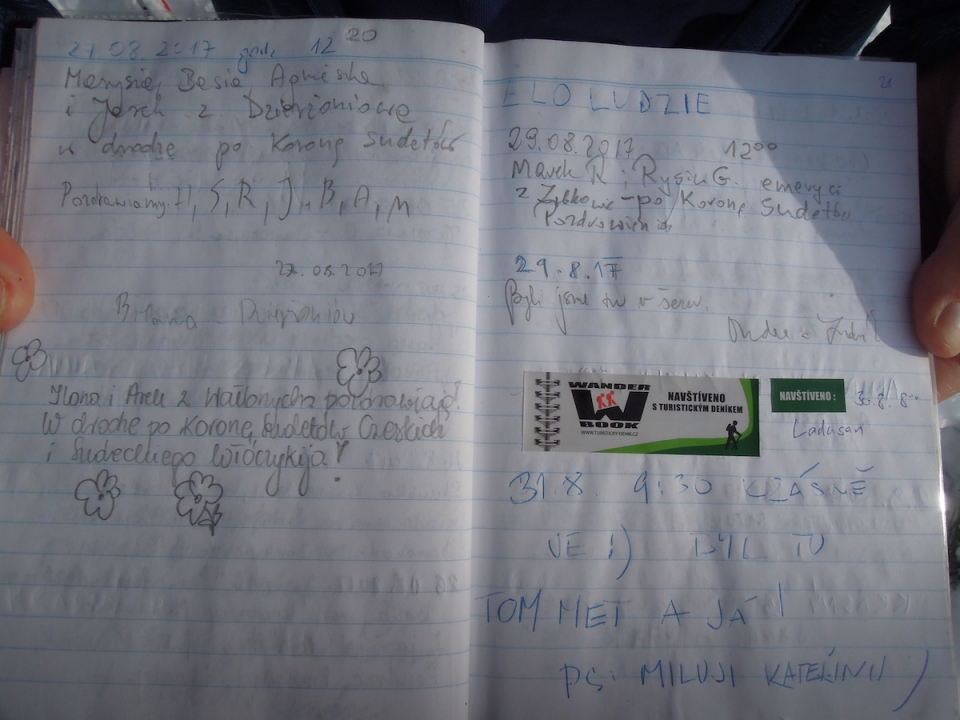 21.08.2017 godz. 12 20
Marysia, Basia, Agnieszka
i Jarek z Dzierżoniowa
w drodze po Koronę Sudetów
Pozdrawiamy H, S, R, J, B, A, M
27.08.2017
Dzierżoniów
Ilona i Arek z Wałbrzycha pozdrawiają!
W drodze po Koronę Sudetów Czeskich
i Sudeckiego Włóczykija!
21
ELO LUDZIE
29.08.2017 12°°
Marek R i Rysiu G. emeryci
z Ząbkowic - po Koronę Sudetów
29.8.17
Byli jsme tu v šeru.
WANDER
BOOK
WWW.TURISTICKYDENIK.CZ
NAVŠTÍVENO
S TURISTICKÝM DENÍKEM
NAVŠTÍVENO: 30.8./ 8°°
Ladušan
31.8. 9:30 KRÁSNĚ
JE :) BYL TU
TOM MET A JÁ!
PS: MILUJI KATEŘINU )